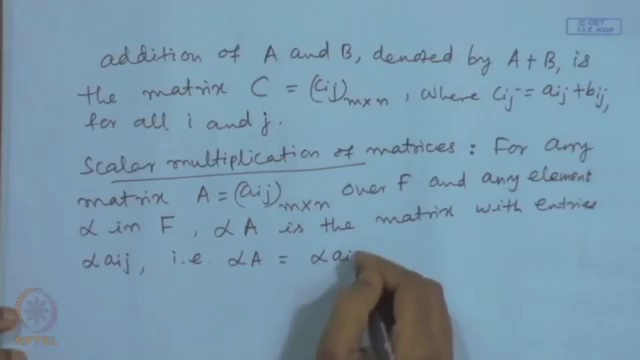 © CET
I.I.T. KGP
addition of A and B, denoted by A + B, is
the matrix C = (cij)m×n, where cij = aij + bij,
for all i and j.
Scalar multiplication of matrices : For any
matrix A = (aij)m×n over F and any element
α in F, αA is the matrix with entries
αaij, i.e. αA = αai
NPTEL